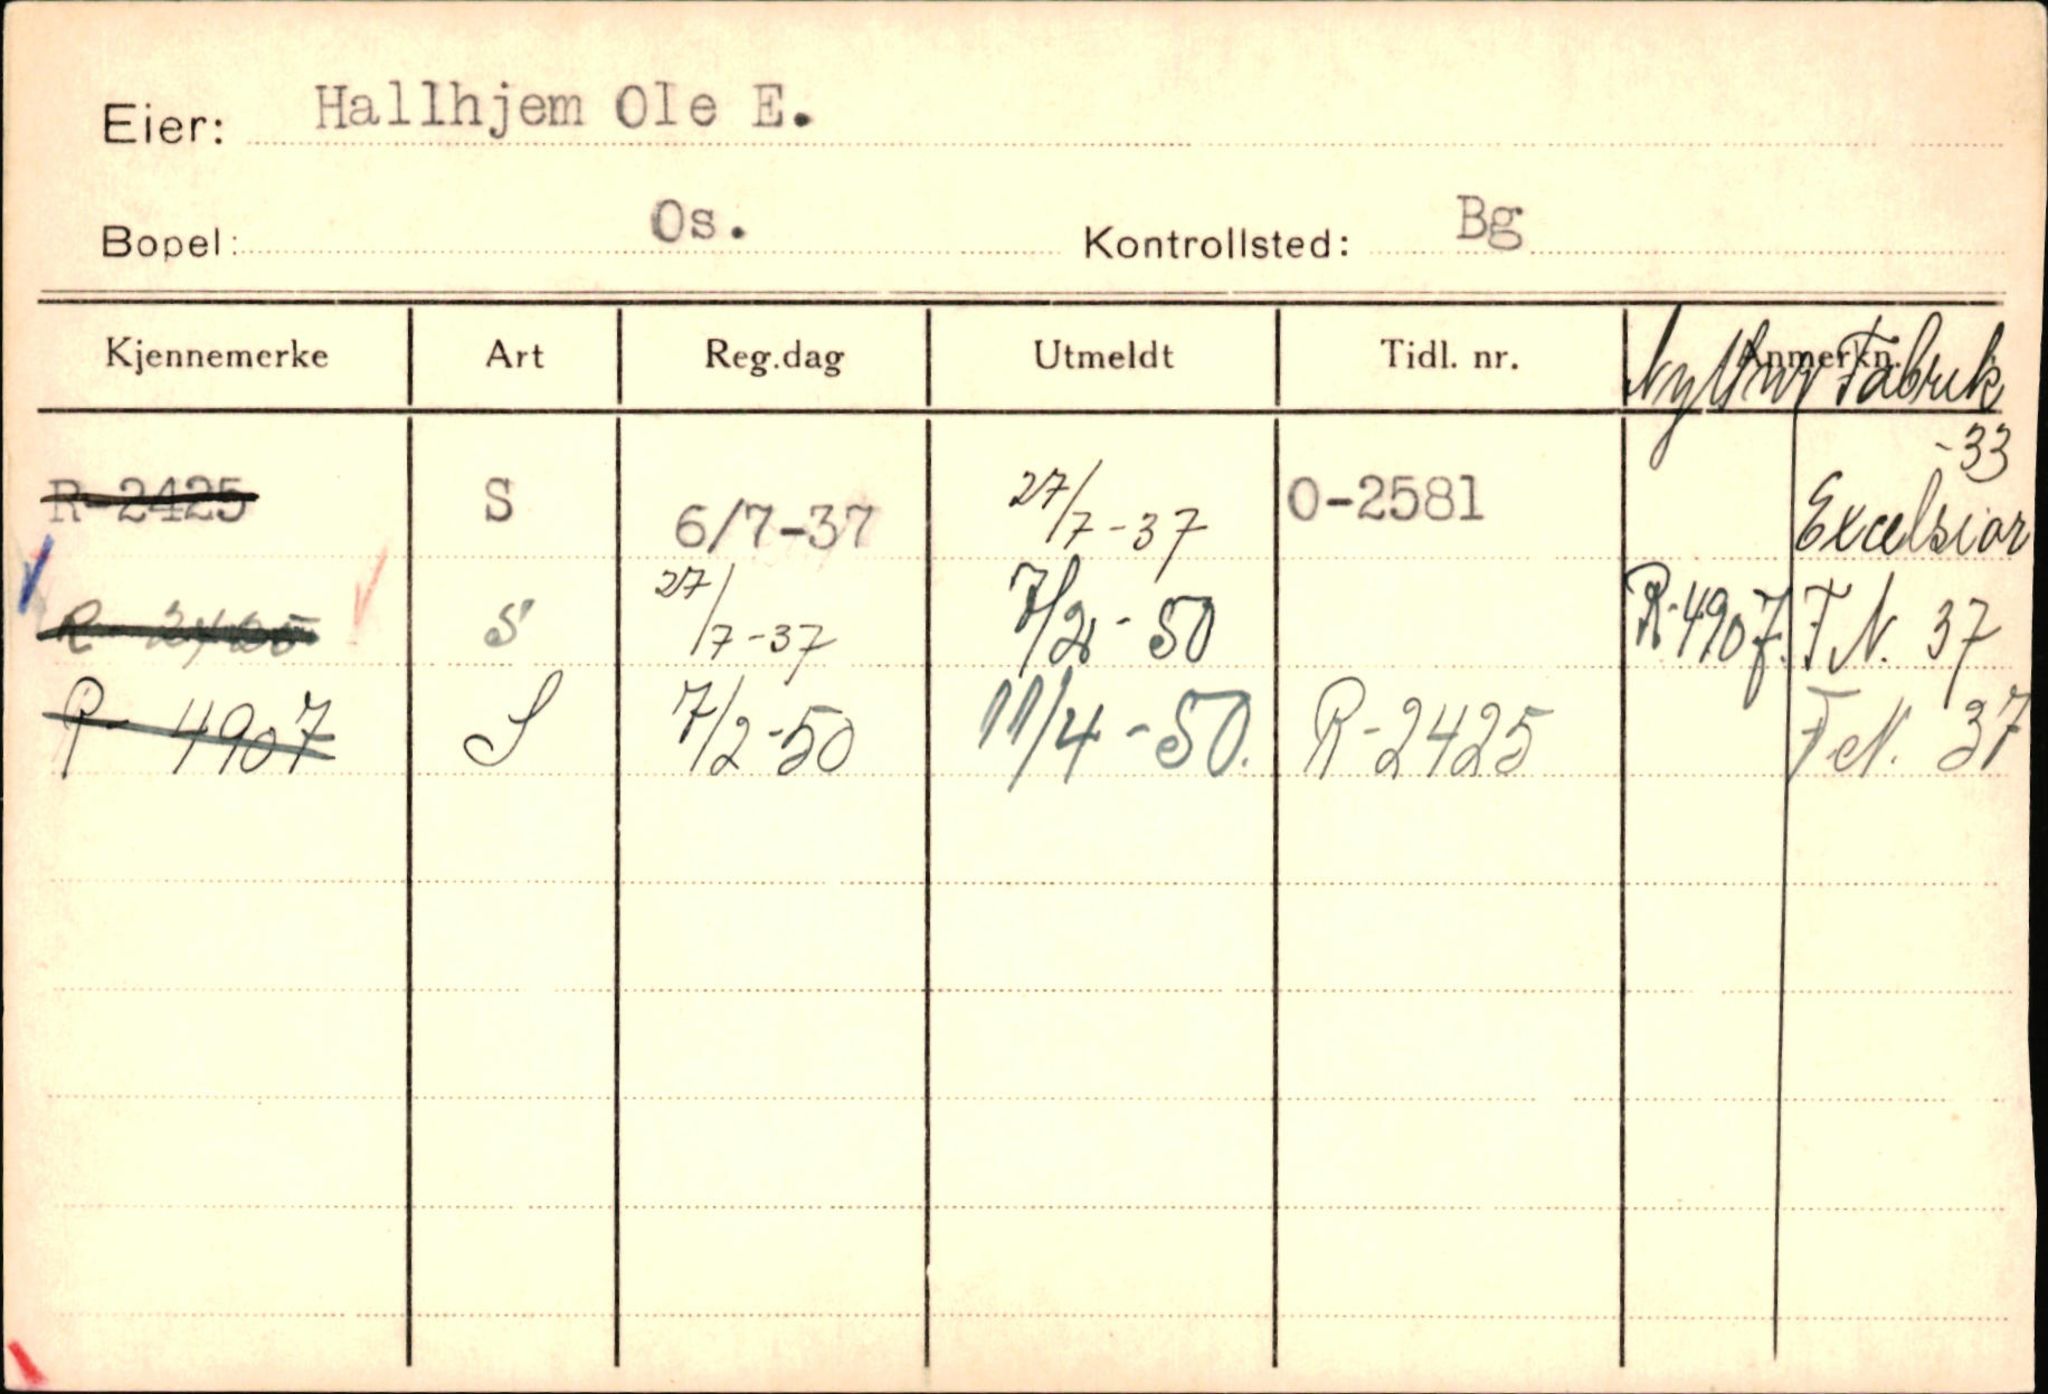 Eier: Hallhjem Ole E.
Bopel: Os. Kontrollsted: Bg
Kjennemerke Art Reg.dag Utmeldt Tidl. nr. Anmerkn. Nytt nr Fabrik
R-2425 S 6/7-37 27/7-37 O-2581 -33 Excelsior
R-2425 S 27/7-37 7/2-50 R-4907. F.N. 37
R-4907 S 7/2-50 11/4-50. R-2425 F.N. 37